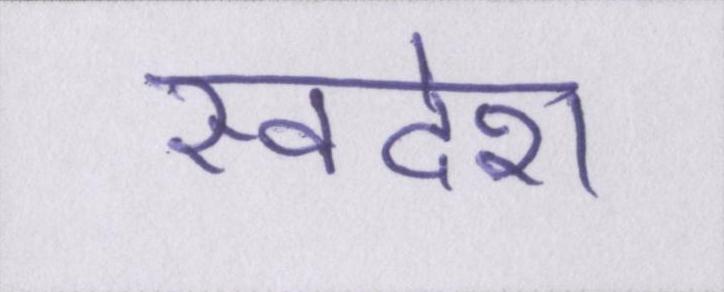 स्वदेश